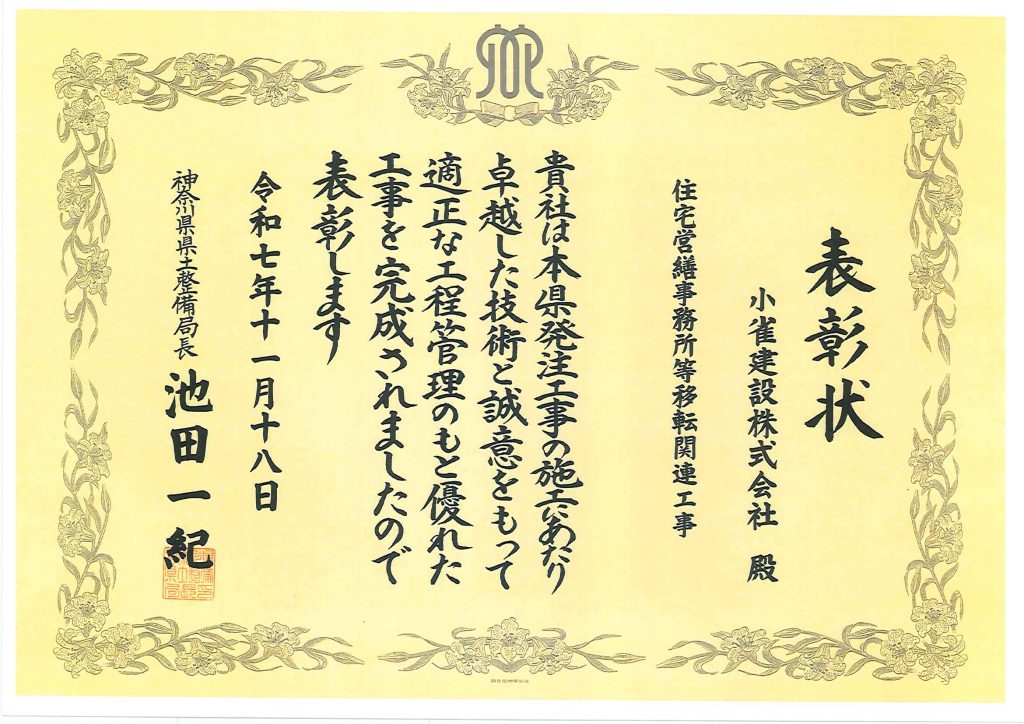 表彰状
小雀建設株式会社 殿
住宅営繕事務所等移転関連工事
貴社は本県発注工事の施工にあたり
卓越した技術と誠意をもって
適正な工程管理のもと優れた
工事を完成されましたので
表彰します
令和七年十一月十八日
神奈川県県土整備局長 池田一紀